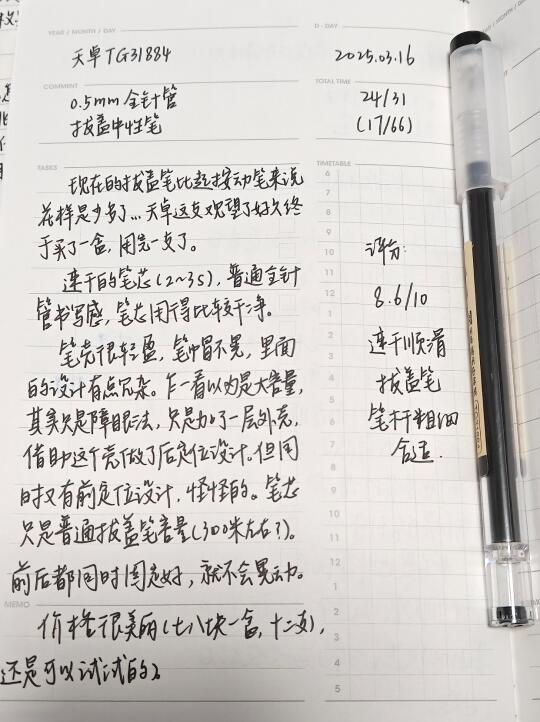 YEAR / MONTH / DAY
D - DAY
天卓TG31884
2025.03.16
COMMENT
TOTAL TIME
0.5mm 全针管
拔盖中性笔
24/31
(17/66)
TASKS
现在的拔盖笔比起按动笔来说
花样是少多了...天卓这支观望了好久终
于买了一盒,用完一支了。
速干的笔芯(2~3s),普通全针
管书写感,笔芯用得比较干净。
笔壳很轻盈,笔帽不晃,里面
的设计有点冗杂。乍一看以为是大容量,
其实只是障眼法,只是加了一层外壳,
借助这个壳做了后定位设计。但同
时又有前定位设计,怪怪的。笔芯
只是普通拔盖笔容量(300米左右?)。
前后都同时固定好,就不会晃动。
TIMETABLE
6
7
8
9
10
11
12
1
2
3
4
5
6
7
8
9
10
11
12
1
2
3
4
5
评分:
8.6/10
速干顺滑
拔盖笔
笔杆粗细
合适.
MEMO
价格很美丽(七八块一盒,十二支),
还是可以试试的。